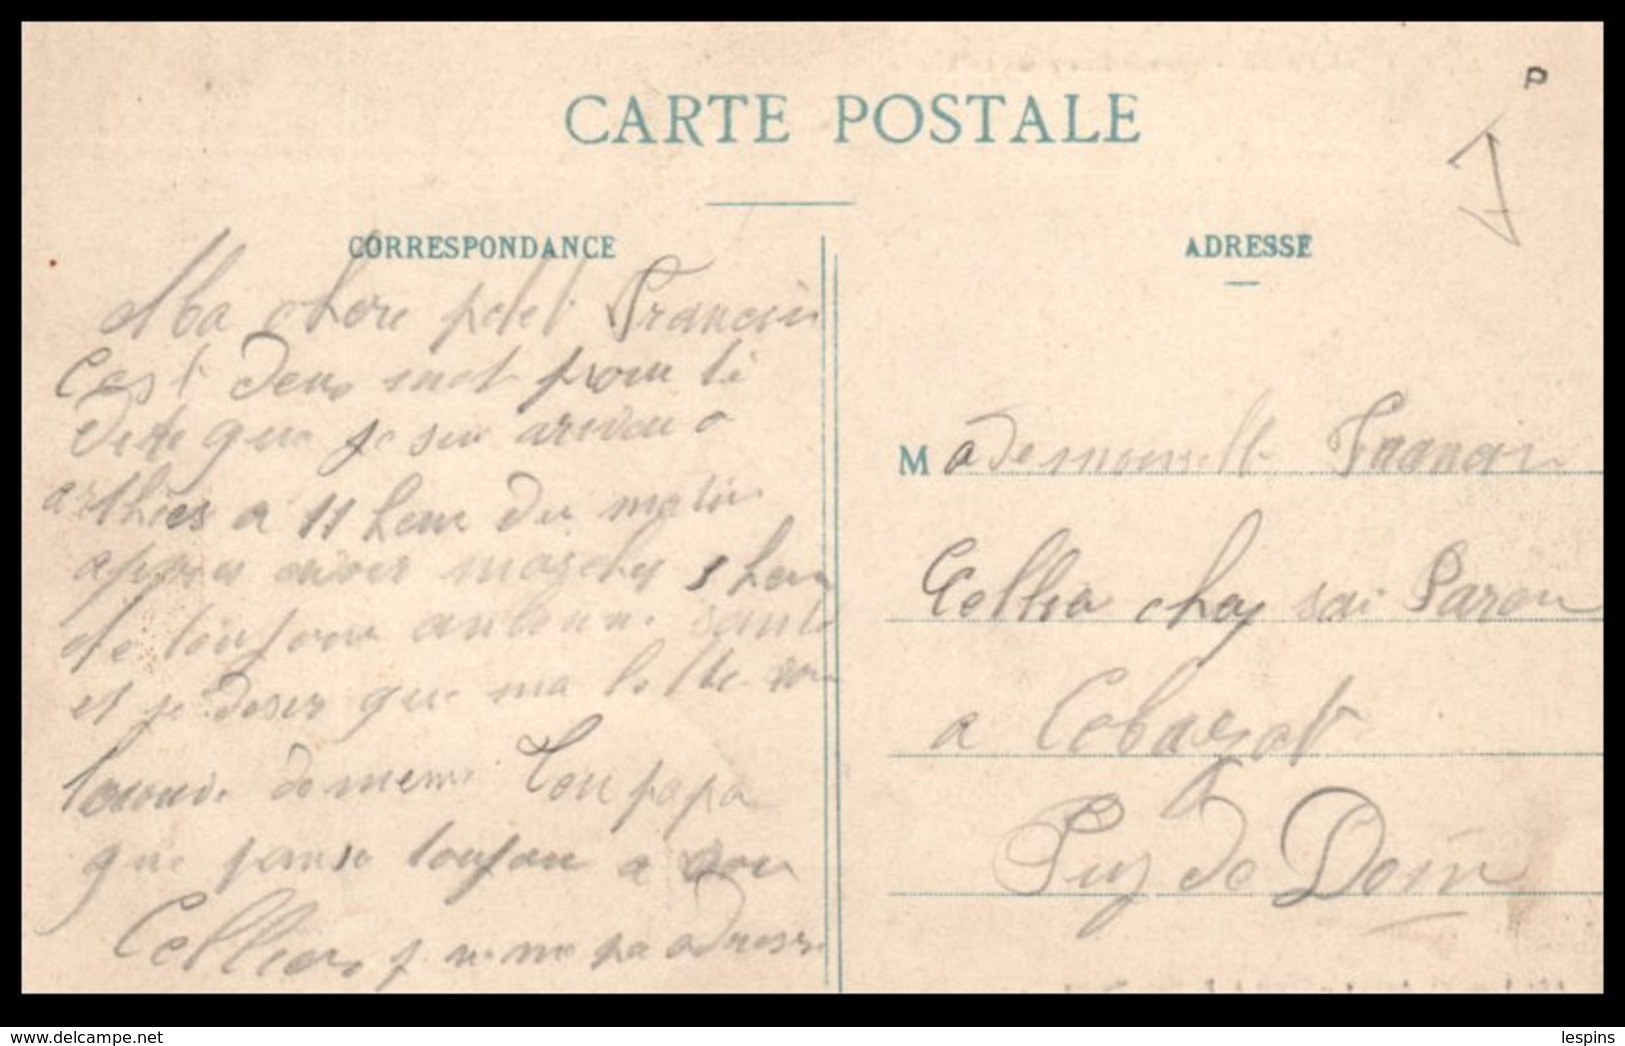 P
CARTE POSTALE
CORRESPONDANCE
Ma chere petet Francin
C'est deux mot pour ti
dire que je sui ariveu a
arthies a 11 heur du matin
apres avoir marches 3 heur
de toujour en bonne sante
et je deser que ma lettre vou
trouve de meme Ton papa
que panse toujour a vou
Cellier
adresse
ADRESSE
Mademoiselle Francin
Cellier chez sai Paron
a Cebazat
Puy de Dom
lespins